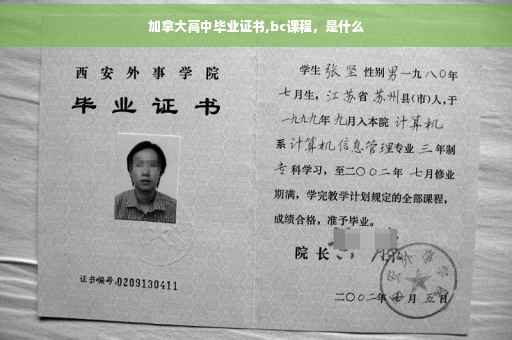 加拿大高中毕业证书,bc课程，是什么
西安外事学院
毕业证书
证书编号:0209130411
学生 张坚 性别男一九八〇年
七月生，江苏省苏州县(市)人,于
一九九九年九月入本院 计算机
系 计算机信息管理专业 三年制
专科学习，至二〇〇二年 七月修业
期满，学完教学计划规定的全部课程，
成绩合格，准予毕业。
院长
二〇〇二年 月五日